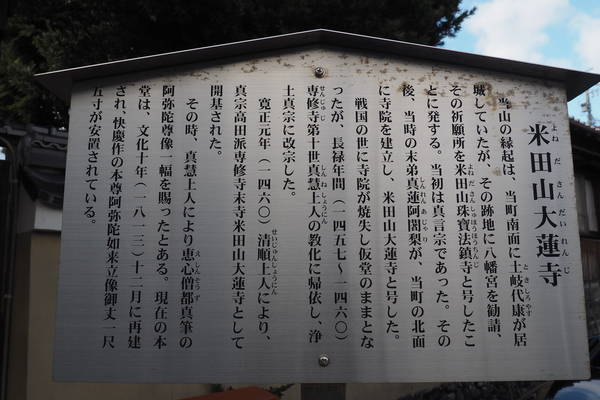 米田山大蓮寺
よねださんだいれんじ
当山の縁起は、当町南面に土岐代康が居
ときしろやす
城していたが、その跡地に八幡宮を勧請、
その祈願所を米田山珠寶法鎮寺と号したこ
よねださんしゅほうほうちんじ
とに発する。当初は真言宗であった。その
後、当時の末弟真蓮阿闍梨が、当町の北面
しんれんあじゃり
に寺院を建立し、米田山大蓮寺と号した。
戦国の世に寺院が焼失し仮堂のままとな
ったが、長禄年間(一四五七〜一四六〇)
専修寺第十世真慧上人の教化に帰依し、浄
せんじゅじ
しんねしょうにん
土真宗に改宗した。
寛正元年(一四六〇)清順上人により、
せいじゅんしょうにん
真宗高田派専修寺末寺米田山大蓮寺として
開基された。
その時、真慧上人により恵心僧都真筆の
えしんそうず
阿弥陀尊像一幅を賜ったとある。現在の本
堂は、文化十年(一八一三)十二月に再建
され、快慶作の本尊阿弥陀如来立像御丈一尺
五寸が安置されている。